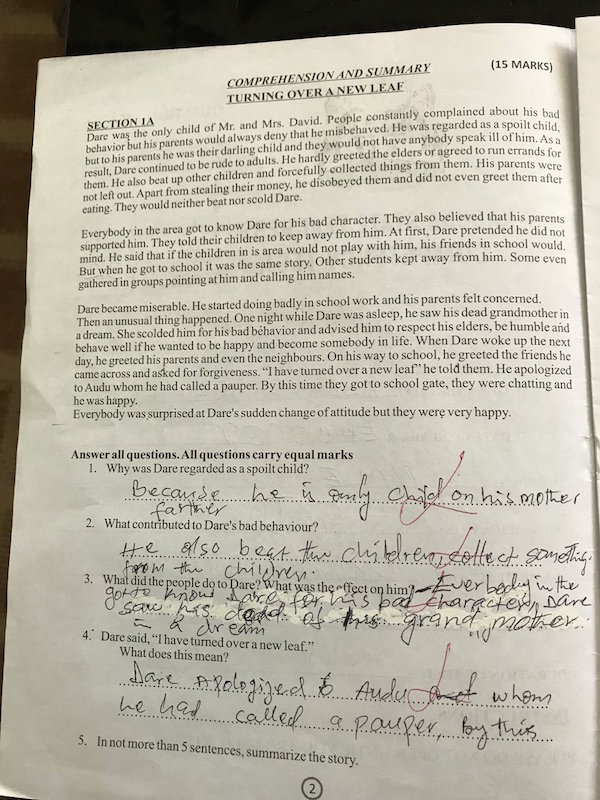 COMPREHENSION AND SUMMARY (15 MARKS)
TURNING OVER A NEW LEAF
SECTION 1A
Dare was the only child of Mr. and Mrs. David. People constantly complained about his bad
behavior but his parents would always deny that he misbehaved. He was regarded as a spoilt child,
but to his parents he was their darling child and they would not have anybody speak ill of him. As a
result, Dare continued to be rude to adults. He hardly greeted the elders or agreed to run errands for
them. He also beat up other children and forcefully collected things from them. His parents were
not left out. Apart from stealing their money, he disobeyed them and did not even greet them after
eating. They would neither beat nor scold Dare.
Everybody in the area got to know Dare for his bad character. They also believed that his parents
supported him. They told their children to keep away from him. At first, Dare pretended he did not
mind. He said that if the children in is area would not play with him, his friends in school would.
But when he got to school it was the same story. Other students kept away from him. Some even
gathered in groups pointing at him and calling him names.
Dare became miserable. He started doing badly in school work and his parents felt concerned.
Then an unusual thing happened. One night while Dare was asleep, he saw his dead grandmother in
a dream. She scolded him for his bad behavior and advised him to respect his elders, be humble and
behave well if he wanted to be happy and become somebody in life. When Dare woke up the next
day, he greeted his parents and even the neighbours. On his way to school, he greeted the friends he
came across and asked for forgiveness. "I have turned over a new leaf" he told them. He apologized
to Audu whom he had called a pauper. By this time they got to school gate, they were chatting and
he was happy.
Everybody was surprised at Dare's sudden change of attitude but they were very happy.
Answer all questions. All questions carry equal marks
1. Why was Dare regarded as a spoilt child?
Because he is only child on his mother
farther
2. What contributed to Dare's bad behaviour?
He also beat the children, collect something
from the children.
3. What did the people do to Dare? What was the effect on him? Everbody in the
got to know Dare for his bad character, Dare
saw his dead of his grand mother.
in a dream
4. Dare said, "I have turned over a new leaf."
What does this mean?
Dare Apologized to Audu whom
he had called a pauper, by this
5. In not more than 5 sentences, summarize the story.
2